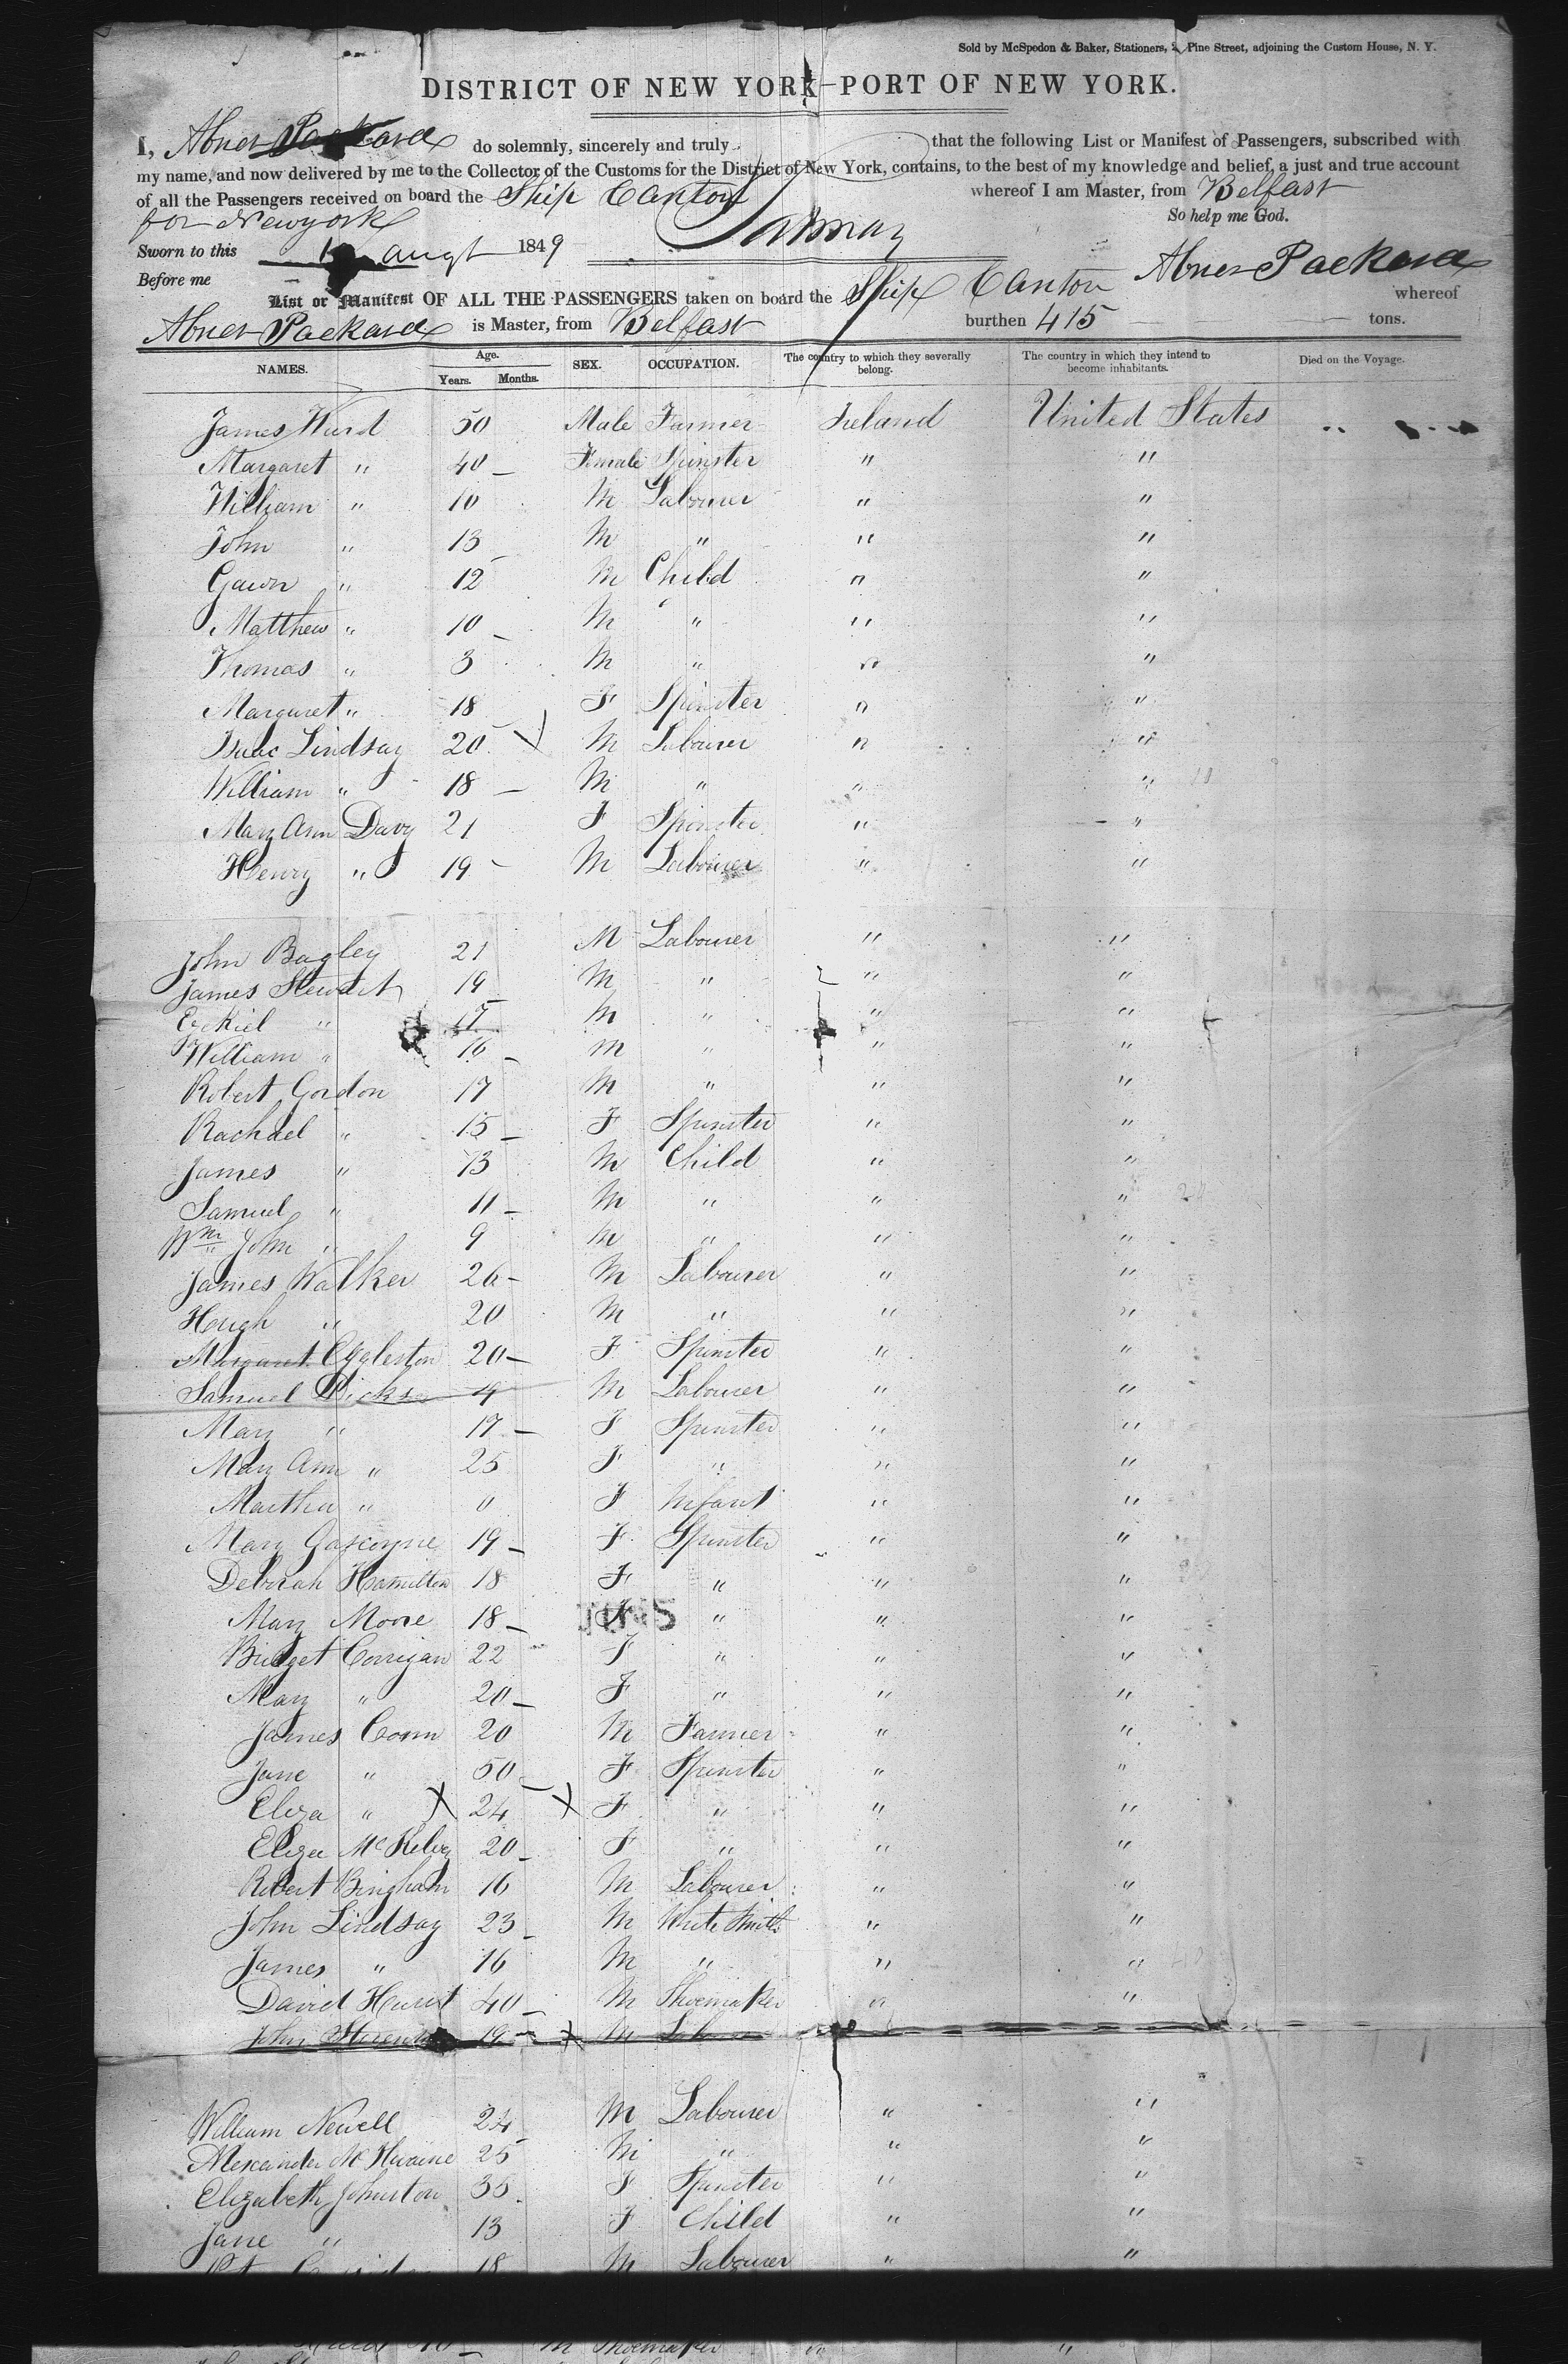 Sold by McSpedon & Baker, Stationers, Pine Street, adjoining the Custom House, N. Y.
DISTRICT OF NEW YORK–PORT OF NEW YORK.
I, Abner Packard do solemnly, sincerely and truly that the following List or Manifest of Passengers, subscribed with
my name, and now delivered by me to the Collector of the Customs for the District of New York, contains, to the best of my knowledge and belief, a just and true account
of all the Passengers received on board the Ship Canton whereof I am Master, from Belfast
for Newyork So help me God.
Sworn to this augt 1849
Before me Abner Packard
List or Manifest OF ALL THE PASSENGERS taken on board the Ship Canton whereof
Abner Packard is Master, from Belfast burthen 415 tons.
NAMES. Age. Years. Months. SEX. OCCUPATION. The country to which they severally belong. The country in which they intend to become inhabitants. Died on the Voyage.
James 50 Male Farmer Ireland United States
Margaret " 40 Female Spinster " "
William " M Labourer " "
John " 13 M " " "
Gawn " 12 M Child " "
Matthew " 10 M " " "
Thomas " 3 M " " "
Margaret " 18 F Spinster " "
Isaac Lindsay 20 M Labourer " "
William " 18 M " " "
Mary Ann Davy 21 F Spinster " "
Henry " 19 M Labourer " "
John Bagley 21 M Labourer " "
James Stewart 19 M " " "
Ezekiel " 17 M " " "
William " 16 M " " "
Robert Gordon 17 M " " "
Rachael " 15 F Spinster " "
James " 13 M Child " "
Samuel " 11 M " " "
Wm John " 9 M " " "
James Walker 26 M Labourer " "
Hugh " 20 M " " "
Margaret Eggleston 20 F Spinster " "
Samuel M Labourer " "
Mary " 17 F Spinster " "
Mary Ann " 25 F " " "
Martha " 0 F Infant " "
Mary Gascoyne 19 F Spinster " "
Deborah Hamilton 18 F " " "
Mary Moore 18 F " " "
Bridget Corrigan 22 F " " "
Mary " 20 F " " "
James Conn 20 M Farmer " "
Jane " 50 F Spinster " "
Eliza " X 24 X F " " "
Eliza McKelvey 20 F " " "
Robert Bingham 16 M Labourer " "
John Lindsay 23 M White Smith " "
James " 16 M " " "
David Hurst 40 M Shoemaker " "
John 19 X M
William Newell 24 M Labourer " "
Alexander 25 M " " "
Elizabeth Johnston F Spinster " "
Jane " 13 F Child " "
18 M Labourer " "
M Shoemaker " "